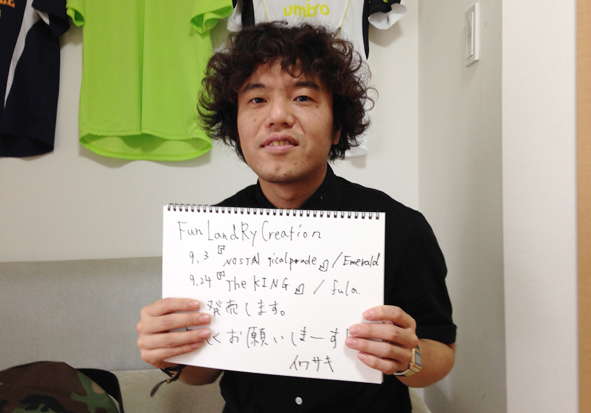 umbro
Fun LandRy Creation
9.3『NOSTAL gicalparade』/Emerald
9.24『The KING』/ fula
発売します。
くお願いしまーす
イワサキ